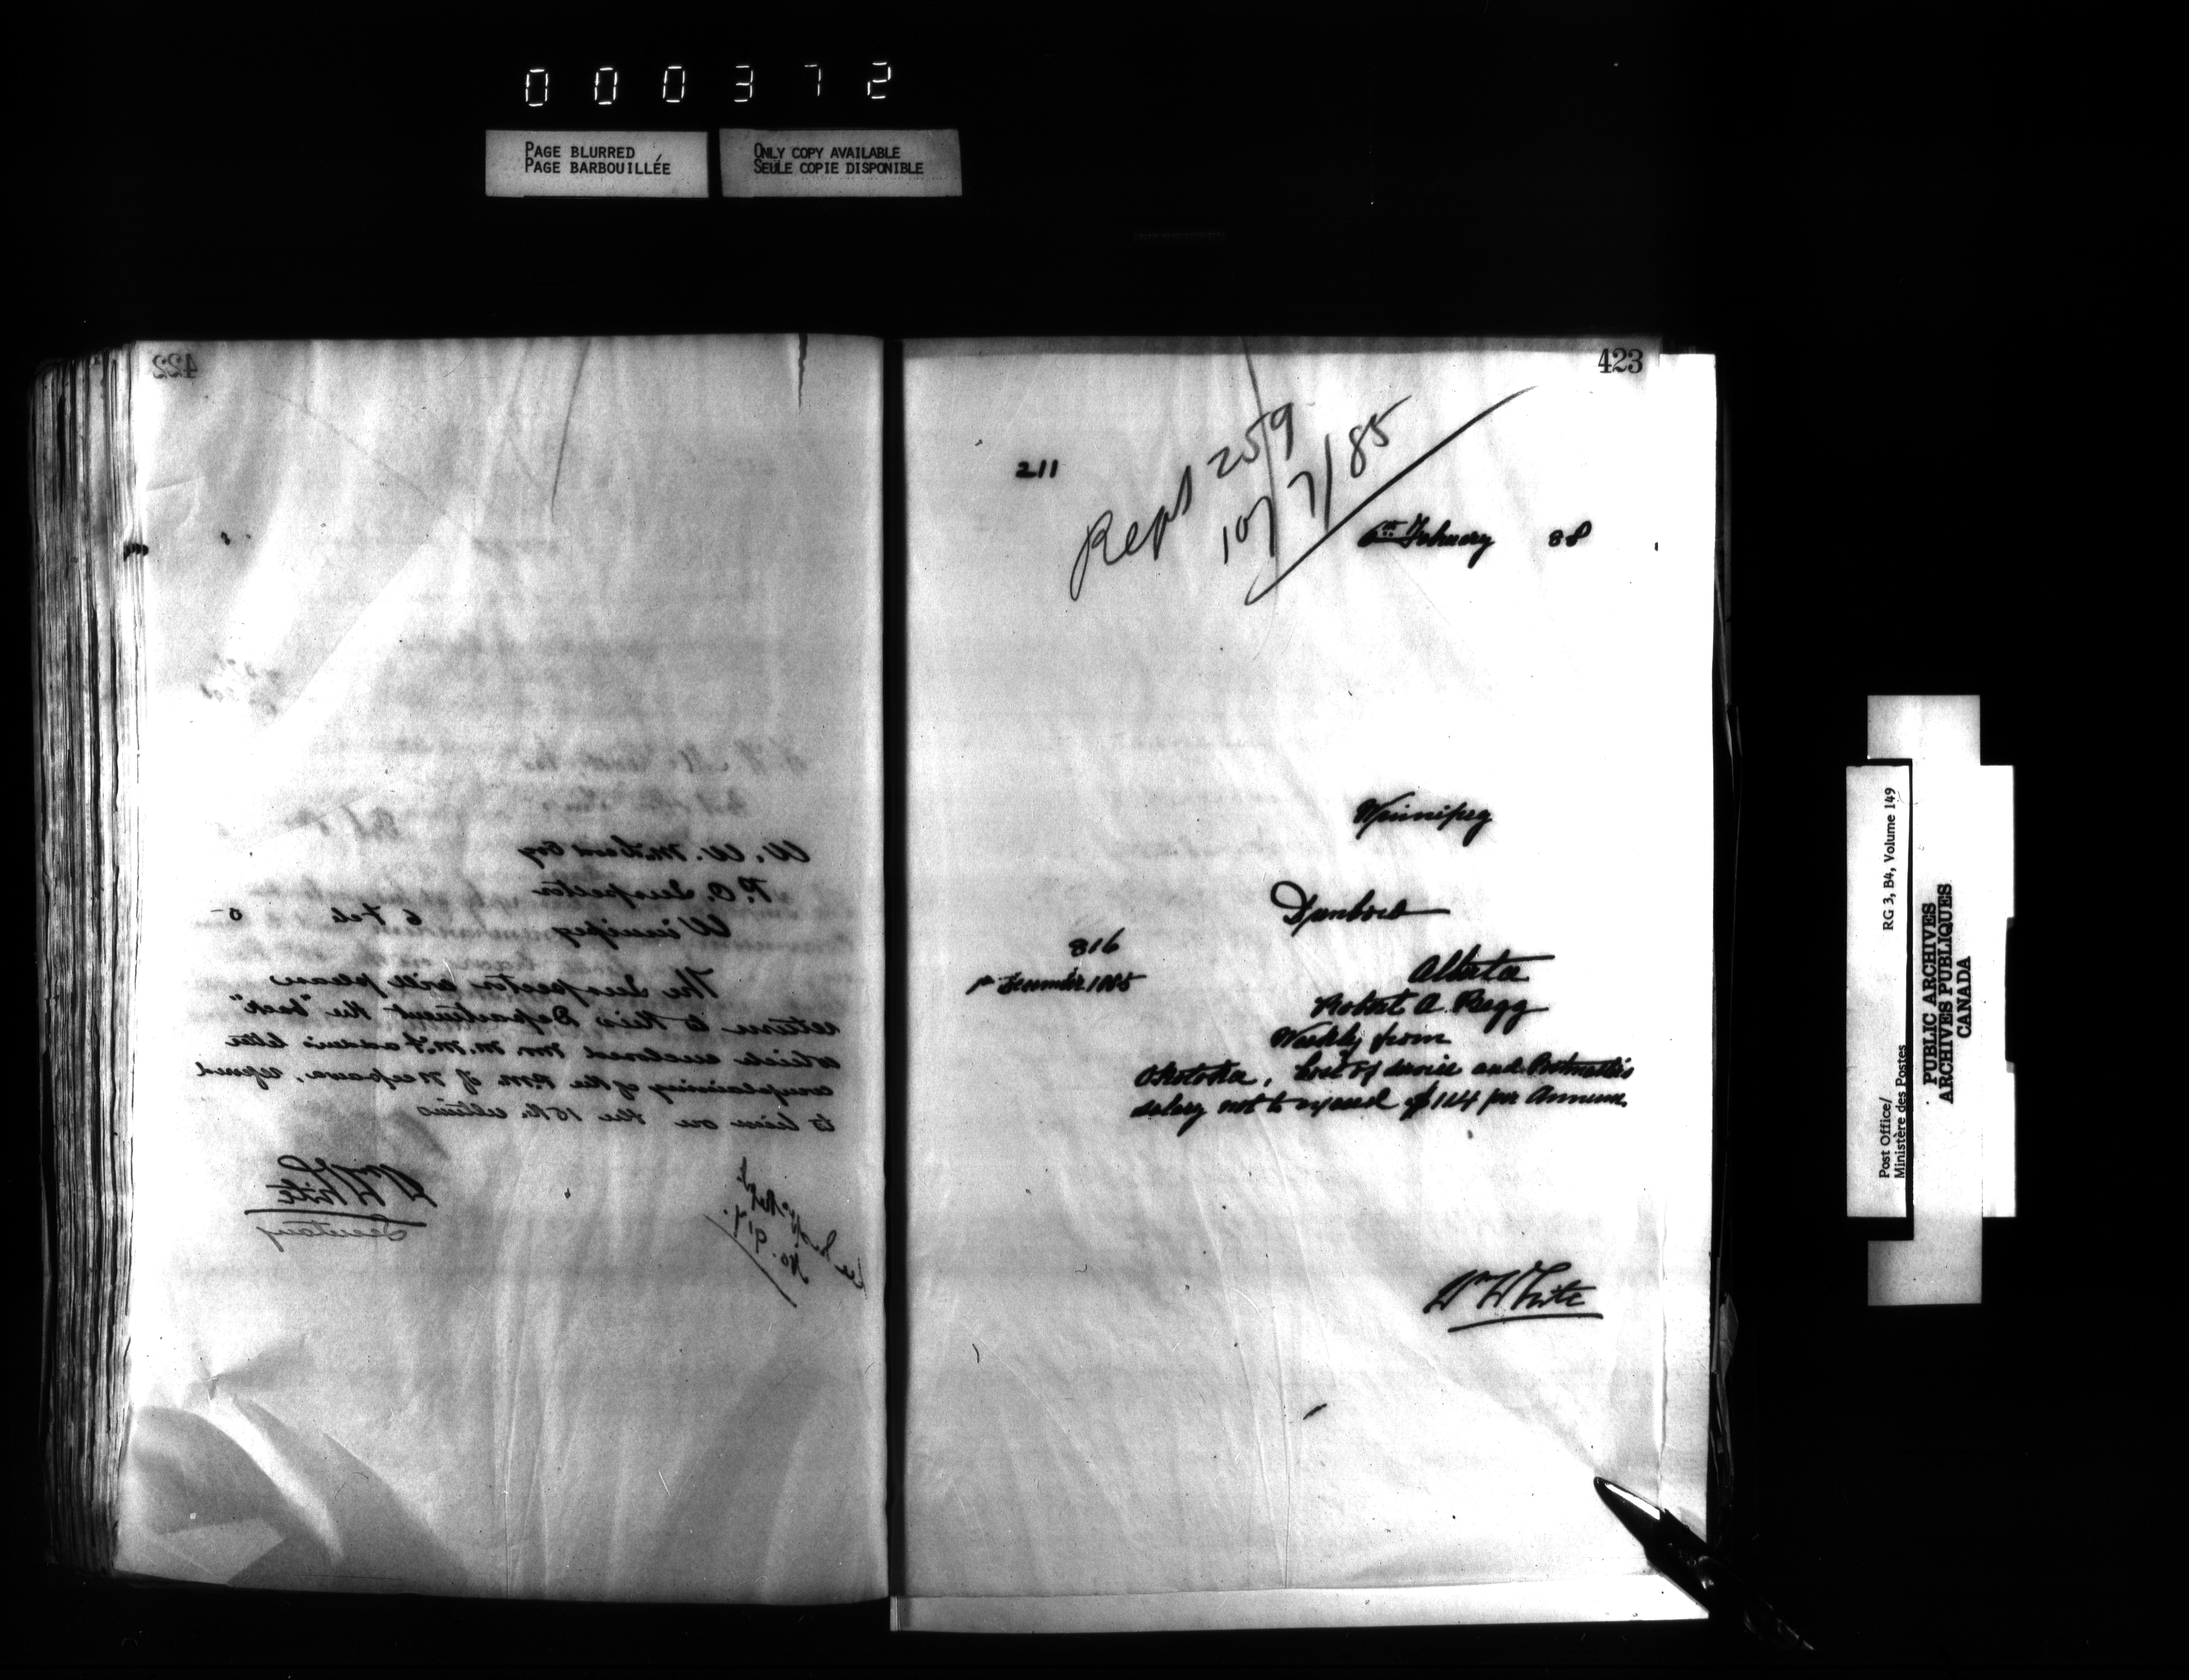 000372
PAGE BLURRED
PAGE BARBOUILLÉE
ONLY COPY AVAILABLE
SEULE COPIE DISPONIBLE
422
W. W. McLeod Esq
P.O. Inspector
Winnipeg 6 Feb
The Inspector will please
return to this Department the "back"
which enclosed Mr. M. McFadden's letter
complaining of the P.M. of Neepawa, referred
to him on the 15th. ultimo
Wm White
Secretary
No. 917.
423
211
Rept 259
10/7/85
6th February 88
Winnipeg
Dunbow
316
1st December 1885
Alberta
Robert A. Begg
Weekly from
Okotoks, Cost of service and Postmaster's
salary not to exceed $114 per Annum.
Wm White
Post Office/
Ministère des Postes
RG 3, B4, Volume 149
PUBLIC ARCHIVES
ARCHIVES PUBLIQUES
CANADA